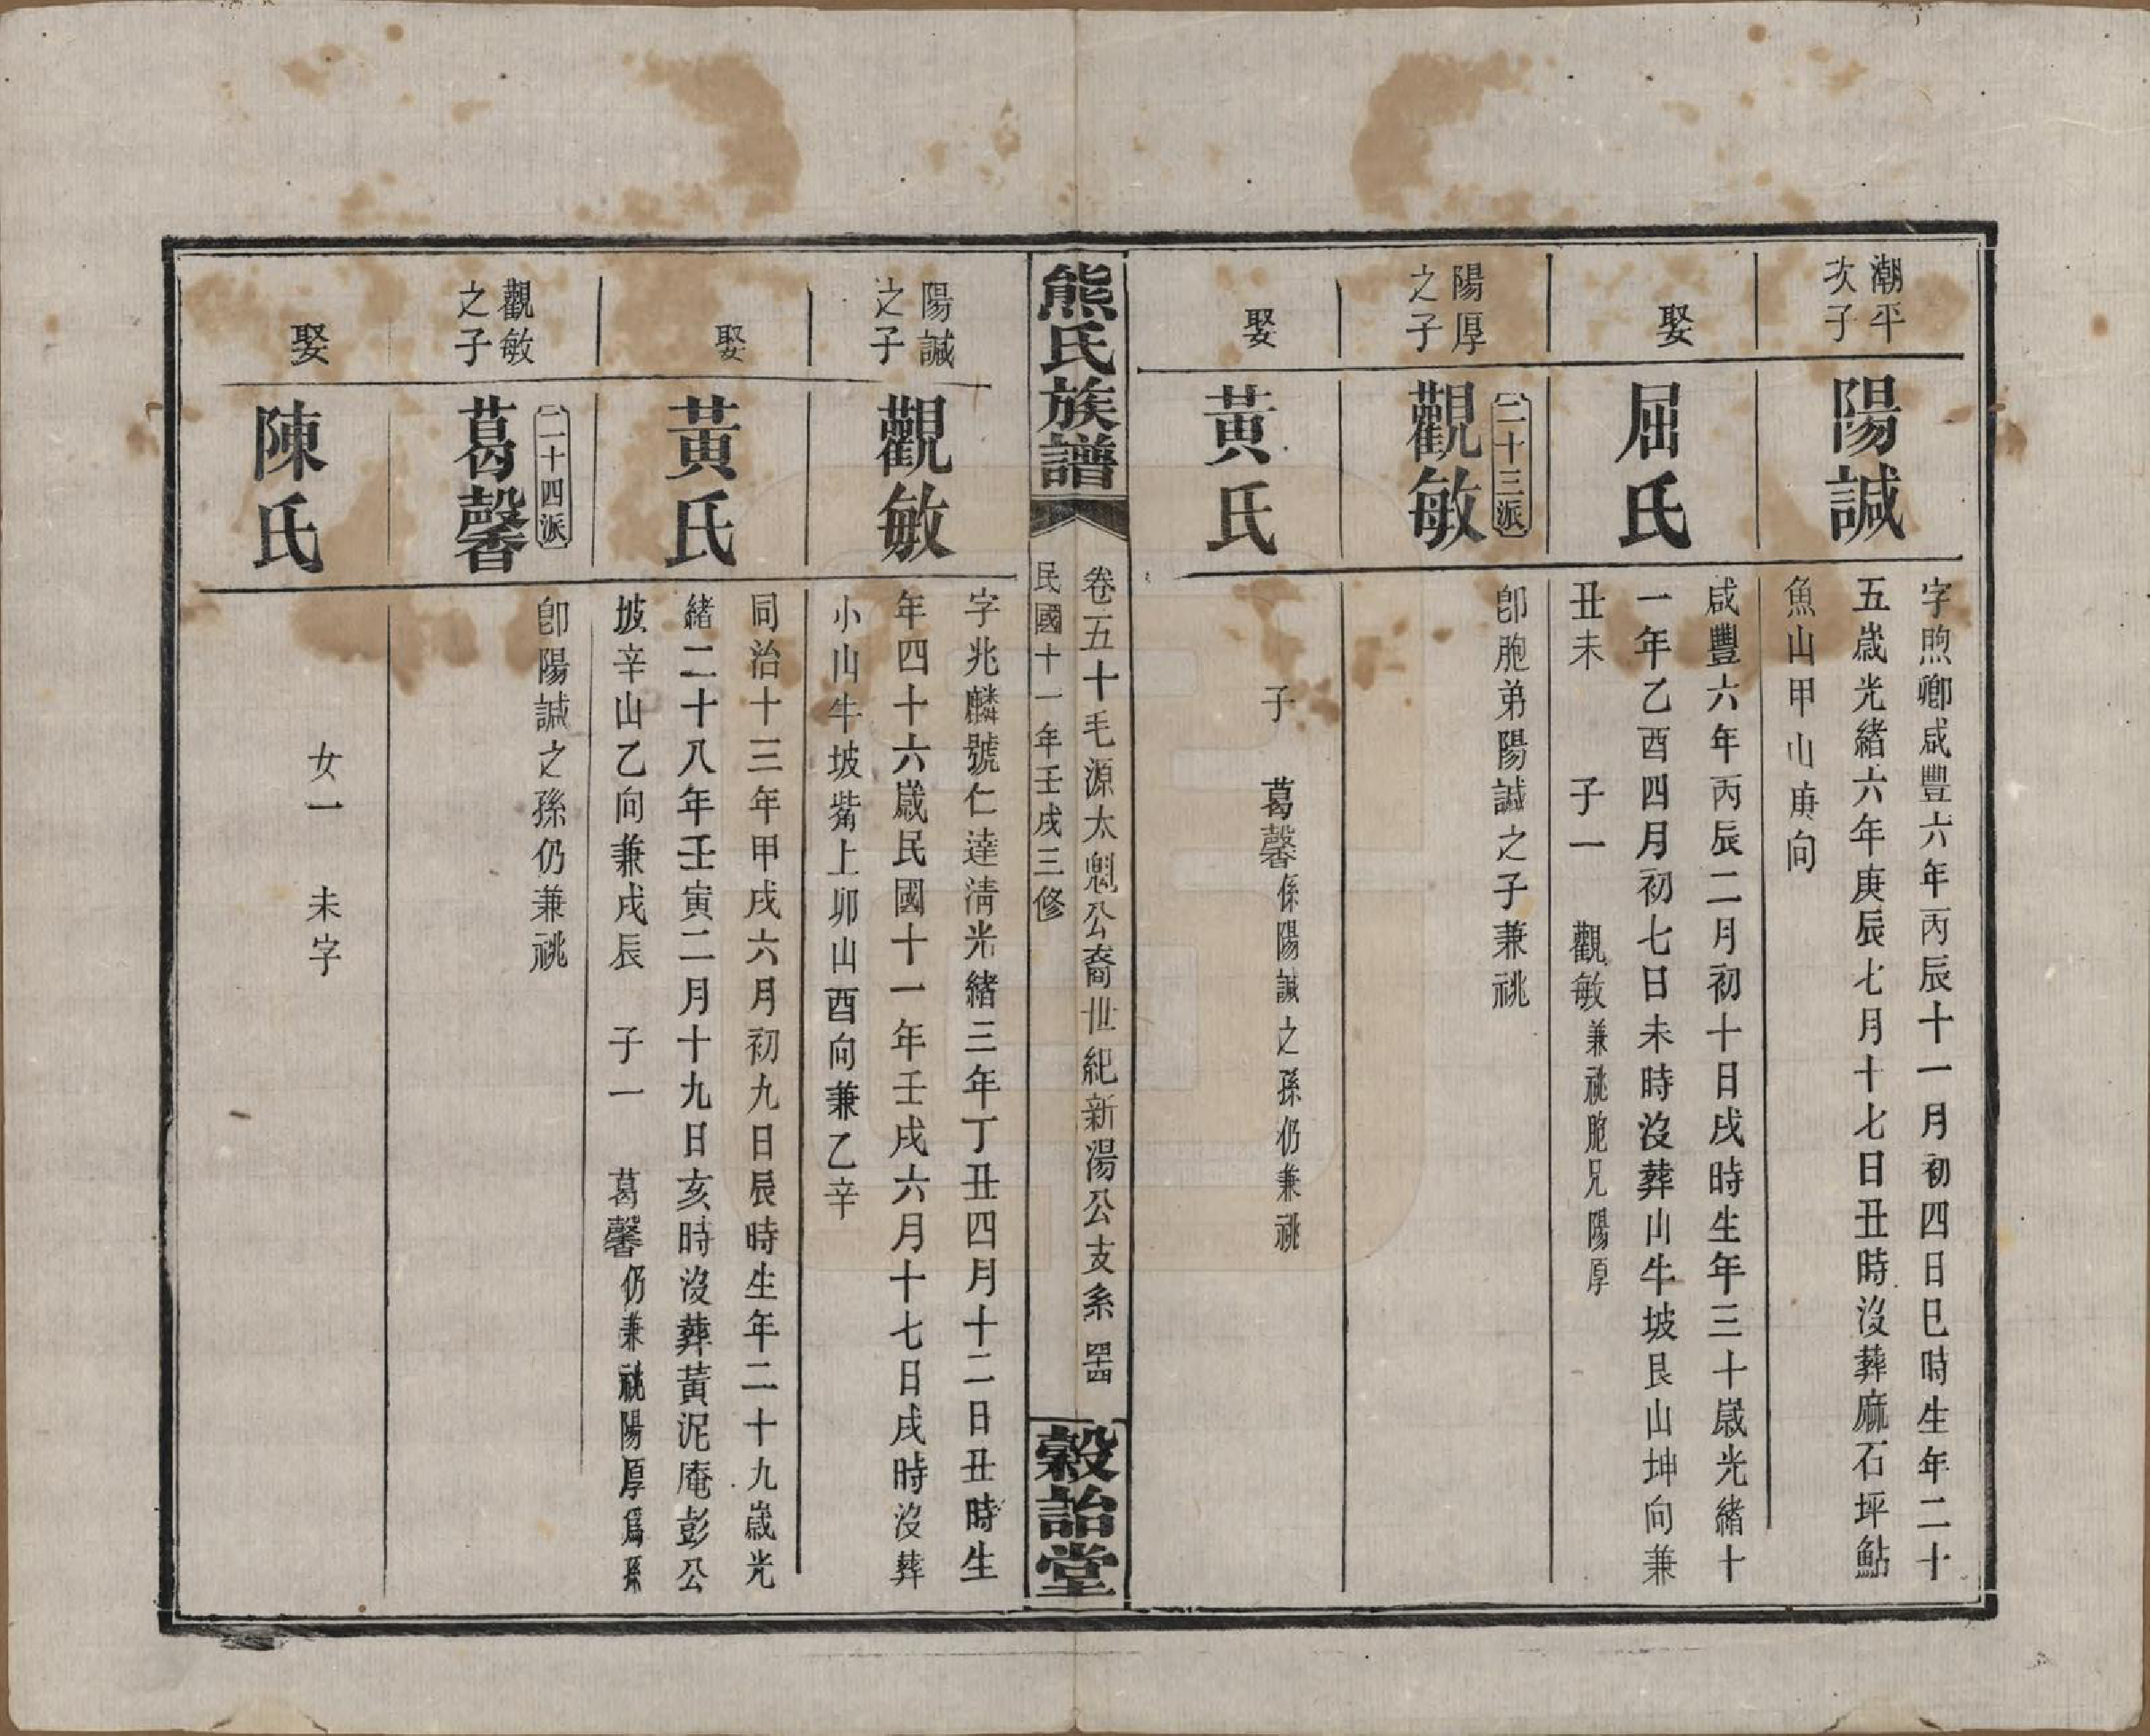 潮平
次子
陽諴
字煦卿咸豐六年丙辰十一月初四日巳時生年二十
五歲光緒六年庚辰七月十七日丑時沒葬麻石坪鮎
魚山甲山庚向
娶
屈氏
咸豐六年丙辰二月初十日戌時生年三十歲光緒十
一年乙酉四月初七日未時沒葬山牛坡艮山坤向兼
丑未 子一 觀敏兼祧胞兄陽厚
陽厚
之子
二十三派
觀敏
卽胞弟陽諴之子兼祧
娶
黃氏
子 葛馨係陽諴之孫仍兼祧
熊氏族譜
卷二五十毛源太魁公裔世紀新湯公支系 四十四
民國十一年壬戌三修
穀詒堂
陽諴
之子
觀敏
字兆麟號仁達淸光緒三年丁丑四月十二日丑時生
年四十六歲民國十一年壬戌六月十七日戌時沒葬
小山牛坡觜上卯山酉向兼乙辛
娶
黃氏
同治十三年甲戌六月初九日辰時生年二十九歲光
緒二十八年壬寅二月十九日亥時沒葬黃泥庵彭公
坡辛山乙向兼戌辰 子一 葛馨仍兼祧陽厚爲孫
觀敏
之子
二十四派
葛馨
卽陽諴之孫仍兼祧
娶
陳氏
女一 未字